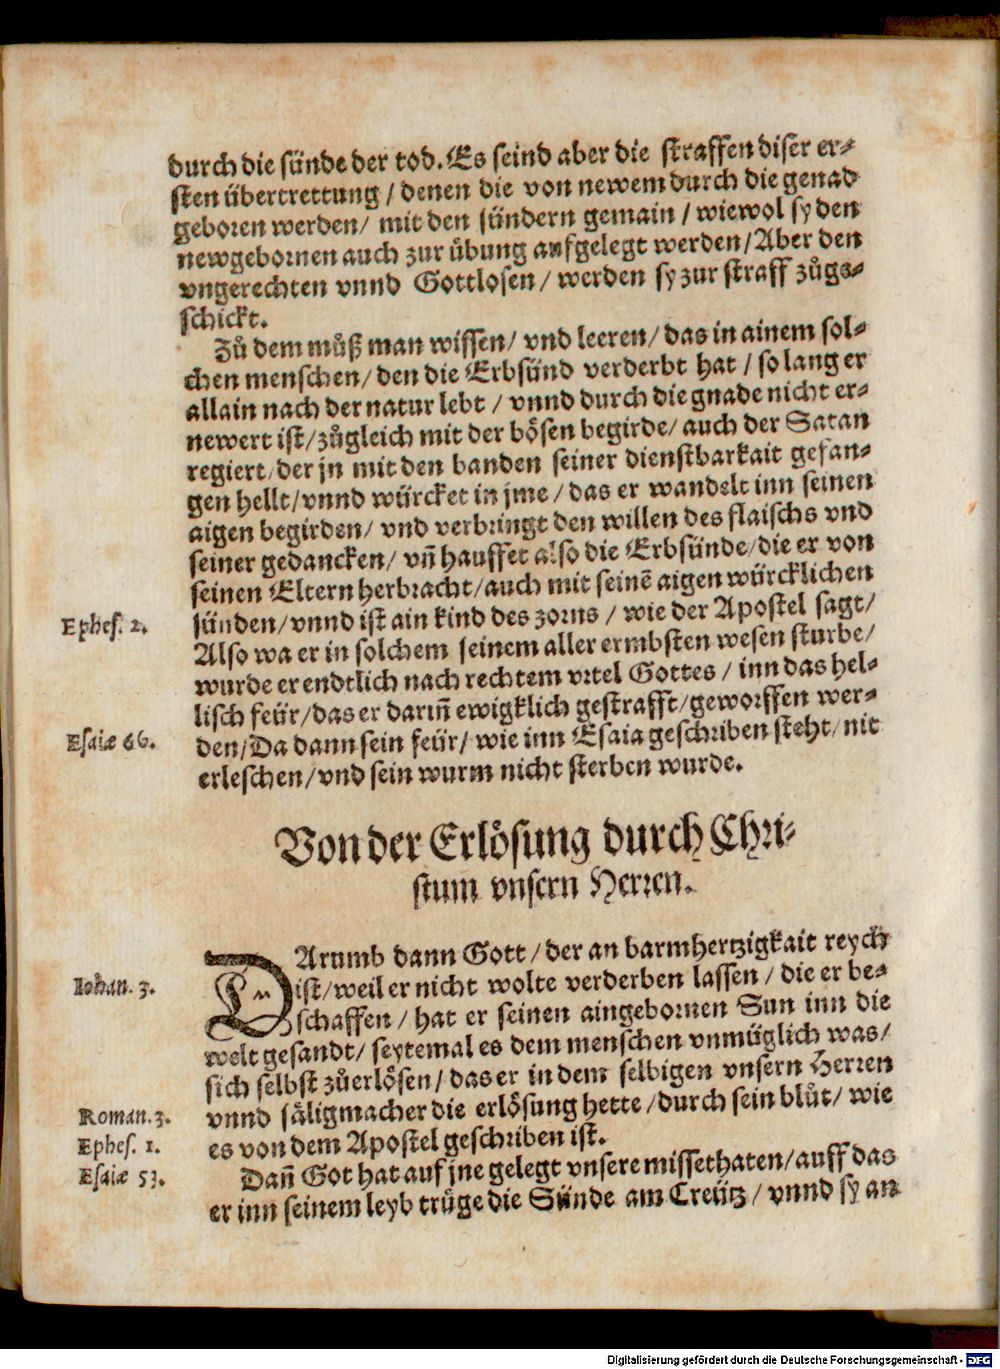 durch die sünde der tod. Es seind aber die straffen diser er-
sten übertrettung / denen die von newem durch die genad
geboren werden / mit den sündern gemain / wiewol sy den
newgebornen auch zur übung aufgelegt werden / Aber den
vngerechten vnnd Gottlosen / werden sy zur straff zůge-
schickt.
Zů dem můß man wissen / vnd leeren / das in ainem sol-
chen menschen / den die Erbsünd verderbt hat / so lang er
allain nach der natur lebt / vnnd durch die gnade nicht er-
newert ist / zůgleich mit der bösen begirde / auch der Satan
regiert / der jn mit den banden seiner dienstbarkait gefan-
gen hellt / vnnd würcket in jme / das er wandelt inn seinen
aigen begirden / vnd verbringt den willen des flaischs vnd
seiner gedancken / vñ hauffet also die Erbsünde / die er von
seinen Eltern herbracht / auch mit seinẽ aigen würcklichen
Ephes. 2. sünden / vnnd ist ain kind des zorns / wie der Apostel sagt /
Also wa er in solchem seinem aller ermbsten wesen sturbe /
wurde er endtlich nach rechtem vrtel Gottes / inn das hel-
lisch feür / das er dariñ ewigklich gestrafft / geworffen wer-
Esaiæ 66. den / Da dann sein feür / wie inn Esaia geschriben steht / nit
erleschen / vnd sein wurm nicht sterben wurde.
Von der Erlösung durch Chri-
stum vnsern Herren.
DArumb dann Gott / der an barmhertzigkait reych
Iohan. 3. ist / weil er nicht wolte verderben lassen / die er be-
schaffen / hat er seinen aingebornen Sun inn die
welt gesandt / seytemal es dem menschen vnmüglich was /
sich selbst zůerlösen / das er in dem selbigen vnsern Herren
Roman. 3. vnnd säligmacher die erlösung hette / durch sein blůt / wie
Ephes. 1. es von dem Apostel geschriben ist.
Esaiæ 53. Dañ Got hat auf jne gelegt vnsere missethaten / auff das
er inn seinem leyb trüge die Sünde am Creütz / vnnd sy an
Digitalisierung gefördert durch die Deutsche Forschungsgemeinschaft - DFG